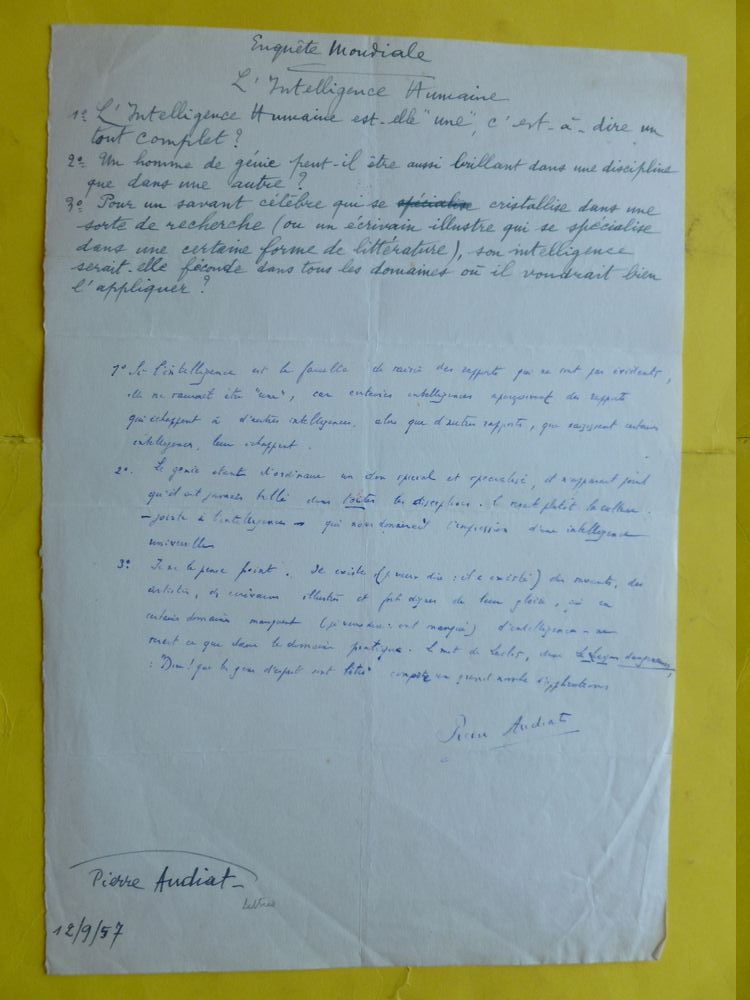 Enquête Mondiale
L'Intelligence Humaine
1º L'Intelligence Humaine est-elle "une", c'est-à-dire un
tout complet?
2º Un homme de génie peut-il être aussi brillant dans une discipline
que dans une autre?
3º Pour un savant célèbre qui se spécialise cristallise dans une
sorte de recherche (ou un écrivain illustre qui se spécialise
dans une certaine forme de littérature), son intelligence
serait-elle féconde dans tous les domaines où il voudrait bien
l'appliquer?
1º Si l'intelligence est la faculté de saisir des rapports qui ne sont pas évidents,
elle ne saurait être "une", car certaines intelligences aperçoivent des rapports
qui échappent à d'autres intelligences, alors que d'autres rapports, que saisissent certaines
intelligences, leur échappent.
2º. Le génie étant d'ordinaire un don spécial et spécialisé, il n'apparaît point
qu'il ait jamais brillé dans toutes les disciplines. Ce serait plutôt la culture
- jointe à l'intelligence - qui nous donnerait l'impression d'une intelligence
universelle
3º. Je ne le pense point. Il existe (je veux dire : il a existé) des savants, des
artistes, des écrivains illustres et fort dignes de leur gloire, qui en
certains domaines manquent (je veux dire : ont manqué) d'intelligence - ne
serait ce que dans le domaine pratique. Le mot de Laclos, dans Les Liaisons dangereuses,
: "Dieu! que les gens d'esprit sont bêtes" comporte un grand nombre d'applications
Pierre Audiat
Pierre Audiat
Lettres
12/9/57